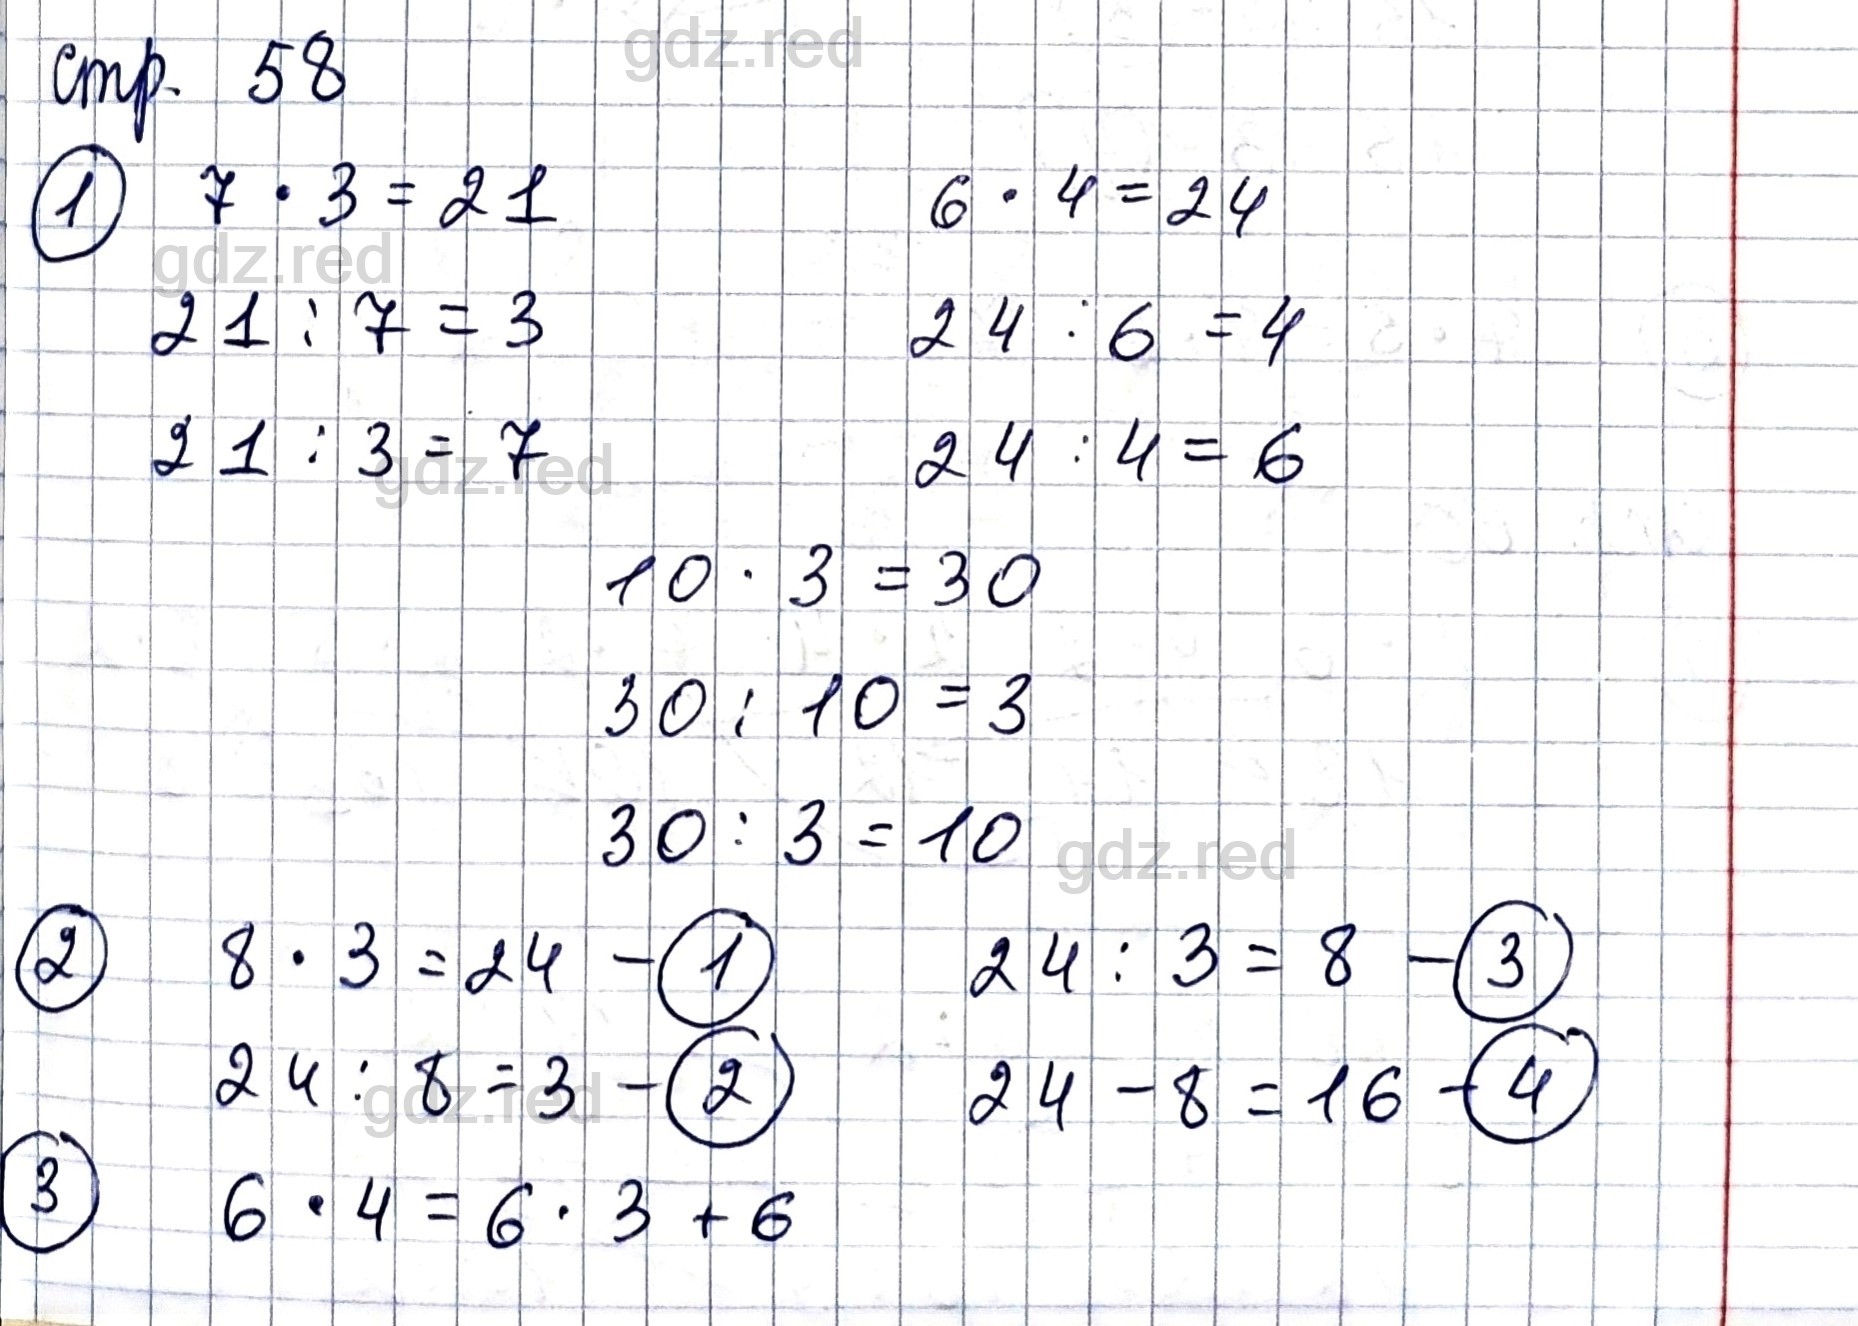 gdz.red
стр. 58
1 7 · 3 = 21 6 · 4 = 24
gdz.red
21 : 7 = 3 24 : 6 = 4
21 : 3 = 7 24 : 4 = 6
gdz.red
10 · 3 = 30
30 : 10 = 3
30 : 3 = 10
gdz.red
2 8 · 3 = 24 - 1 24 : 3 = 8 - 3
24 : 8 = 3 - 2 24 - 8 = 16 - 4
gdz.red
3 6 · 4 = 6 · 3 + 6